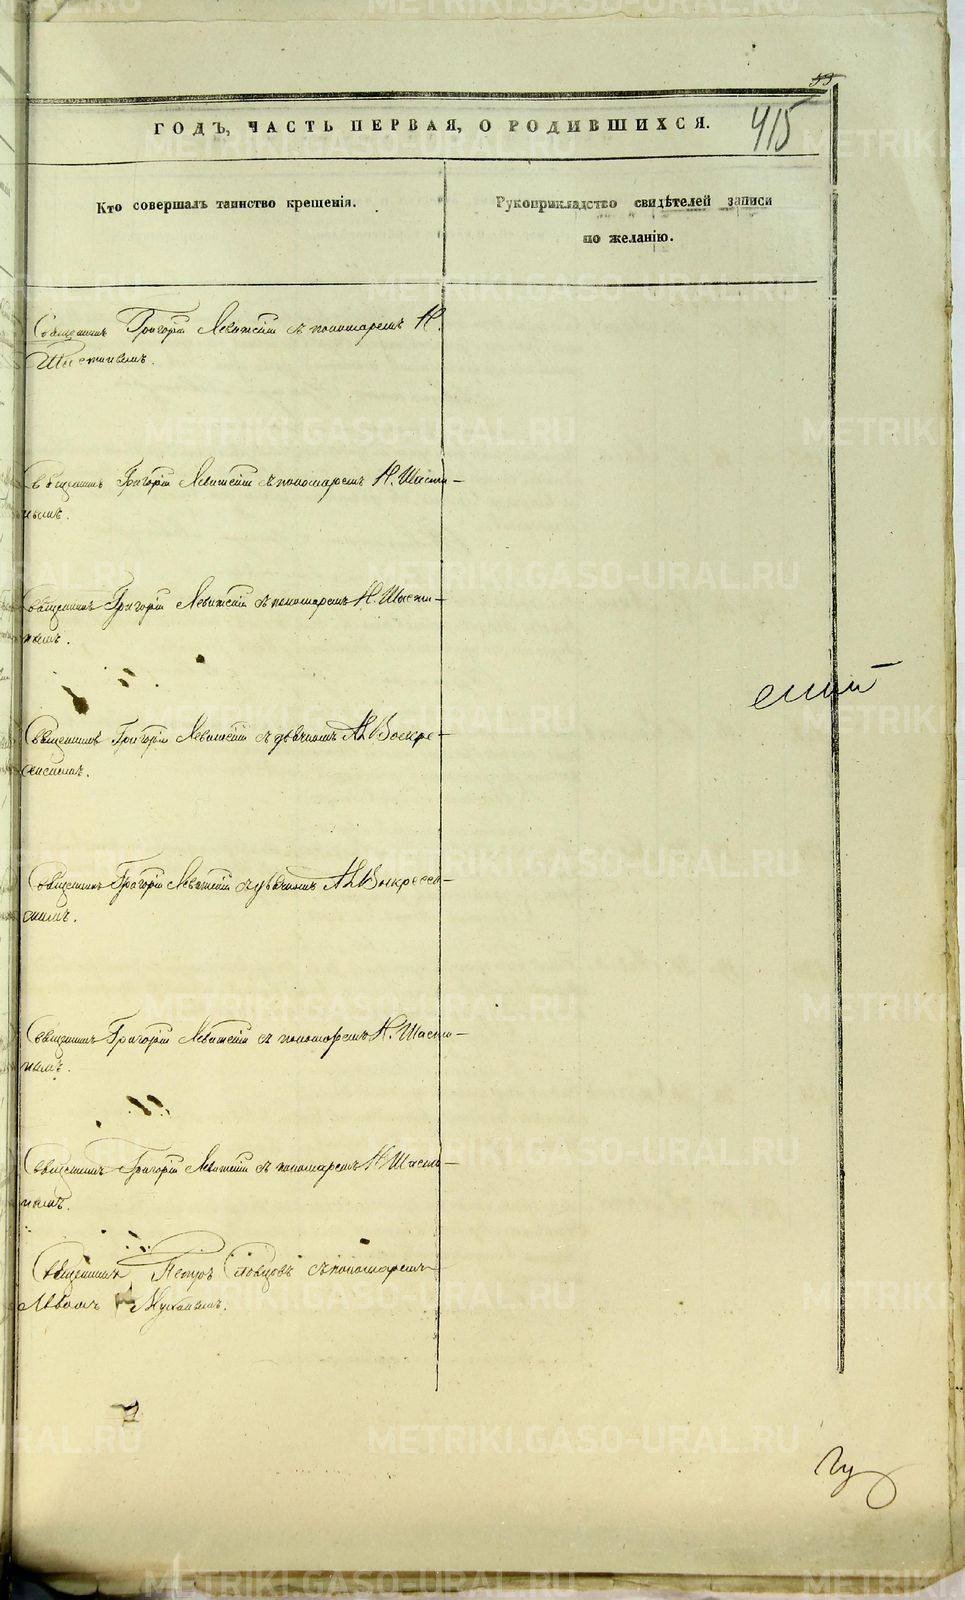 ГОДЪ, ЧАСТЬ ПЕРВАЯ, О РОДИВШИХСЯ.
415
Кто совершалъ таинство крещенія.
Рукоприкладство свидѣтелей записи
по желанію.
Священникъ Григорій Левитскій съ пономаремъ Н.
Шастинымъ.
Священникъ Григорій Левитскій съ пономаремъ Н. Шасти-
нымъ.
Священникъ Григорій Левитскій съ пономаремъ Н. Шасти-
нымъ.
Священникъ Григорій Левитскій съ дьячкомъ Воскре-
сенскимъ.
Священникъ Григорій Левитскій съ дьячкомъ Воскресен-
скимъ.
Священникъ Григорій Левитскій съ пономаремъ Н. Шасти-
нымъ.
Священникъ Григорій Левитскій съ пономаремъ Н. Шасти-
нымъ.
Священникъ Петръ Словцовъ съ пономаремъ
METRIKI.GASO-URAL.RU